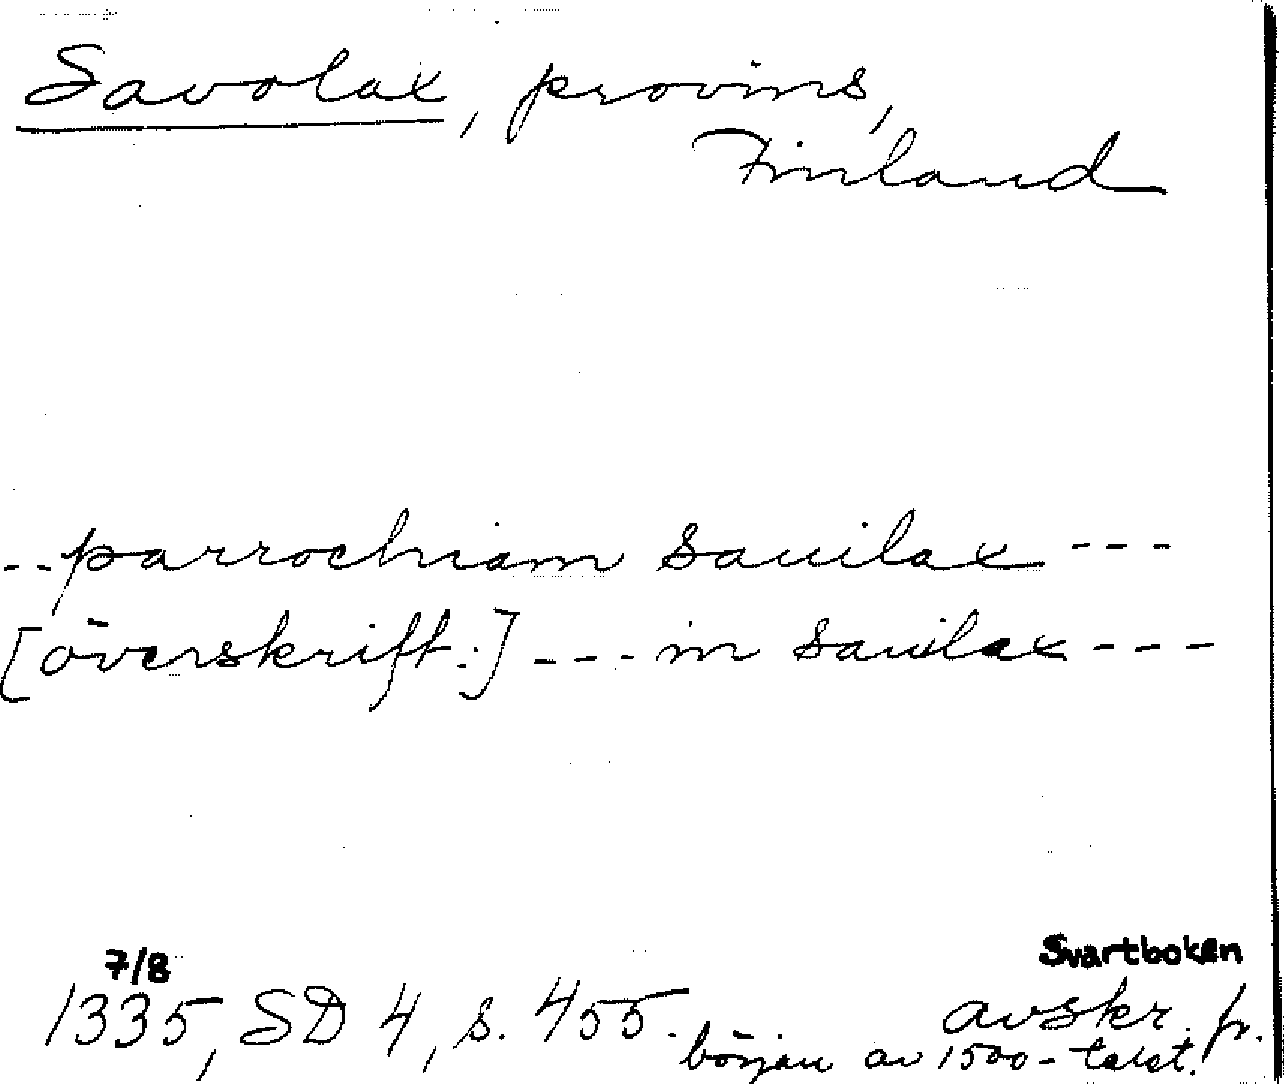 Savolax, provins,
Finland
--parrochiam sauilax ---
[överskrift:] --- in sauilax ---
7/8
1335, SD 4, s. 455.
Svartboken
avskr. fr.
början av 1500-talet.